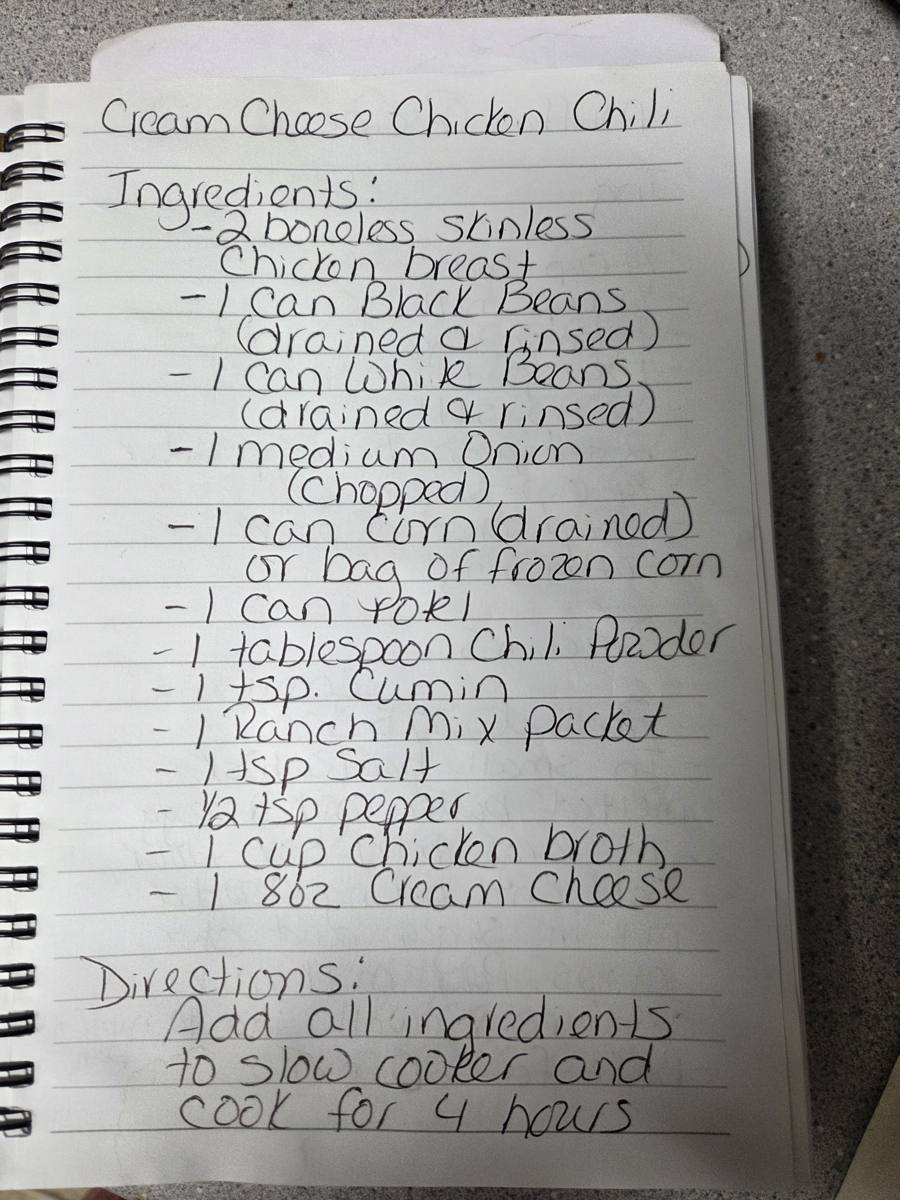 Cream Cheese Chicken Chili
Ingredients:
- 2 boneless skinless
Chicken breast
- 1 Can Black Beans
(drained & rinsed)
- 1 Can White Beans
(drained & rinsed)
- 1 medium Onion
(Chopped)
- 1 can corn (drained)
or bag of frozen corn
- 1 Can rotel
- 1 tablespoon Chili Powder
- 1 tsp. Cumin
- 1 Ranch Mix packet
- 1 tsp Salt
- 1/2 tsp pepper
- 1 cup Chicken broth
- 1 8oz Cream Cheese
Directions:
Add all ingredients
to slow cooker and
cook for 4 hours